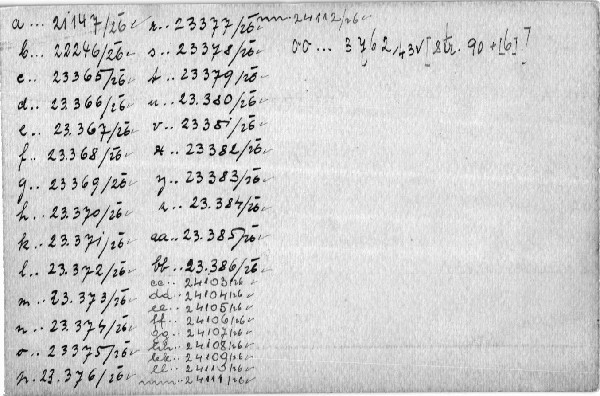 a... 21147/26
b... 22246/26
c... 23365/26
d.. 23.366/26
e... 23.367/26
f... 23.368/26
g.. 23369/26
h.. 23.370/26
k.. 23.371/26
l.. 23.372/26
m.. 23.373/26
n.. 23.374/26
o.. 23375/26
p. 23.376/26
r.. 23377/26
s.. 23378/26
t.. 23379/26
u.. 23.380/26
v.. 23381/26
x.. 23382/26
y.. 23383/26
z.. 23.384/26
aa.. 23.385/26
bb.. 23.386/26
cc.. 24103/26
dd.. 24104/26
ee.. 24105/26
ff.. 24106/26
gg.. 24107/26
hh.. 24108/26
kk.. 24109/26
ll.. 24110/26
mm.. 24111/26
nn.. 24112/26
oo... 3762/43 [str. 90+[6]]